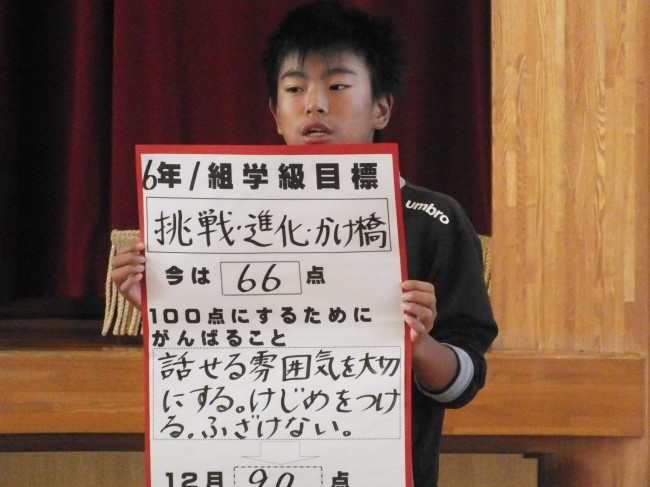 6年1組学級目標
挑戦・進化・かけ橋
今は 66 点
100点にするために
がんばること
話せる雰囲気を大切
にする。けじめをつけ
る。ふざけない。
12月 90 点
umbro